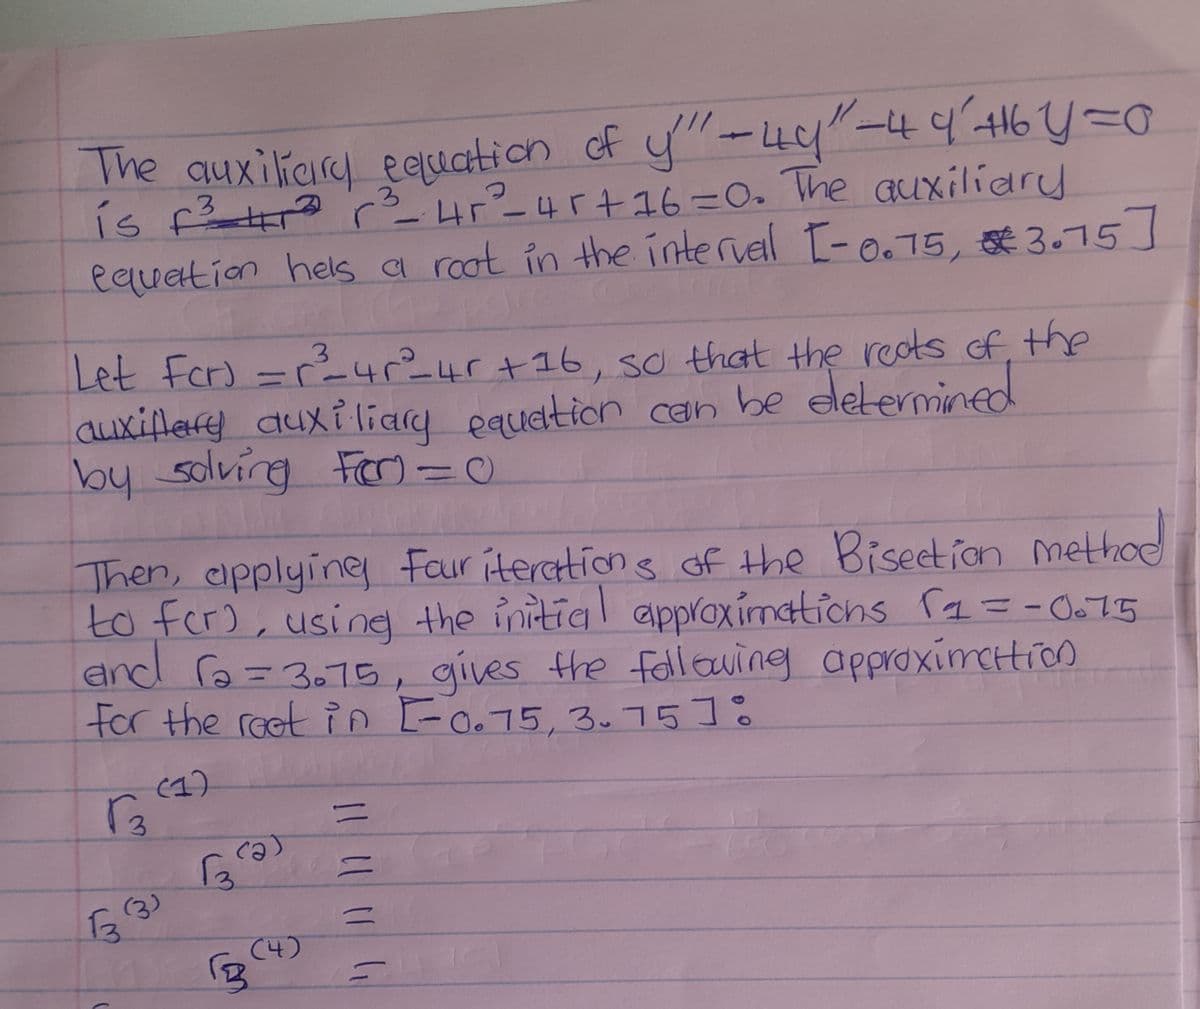 The auxiliary equation of y''' - 4y'' - 4y' + 16y = 0
is r³ - 4r² - 4r + 16 = 0. The auxiliary
equation has a root in the interval [-0.75, 3.75]
Let f(r) = r³ - 4r² - 4r + 16, so that the roots of the
auxiliary equation can be determined
by solving F(r) = 0
Then, applying Four iterations of the Bisection method
to f(r), using the initial approximations r1 = -0.75
and r2 = 3.75, gives the following approximation
for the root in [-0.75, 3.75]:
r3 (1) =
r3 (2) =
r3 (3) =
r3 (4) =